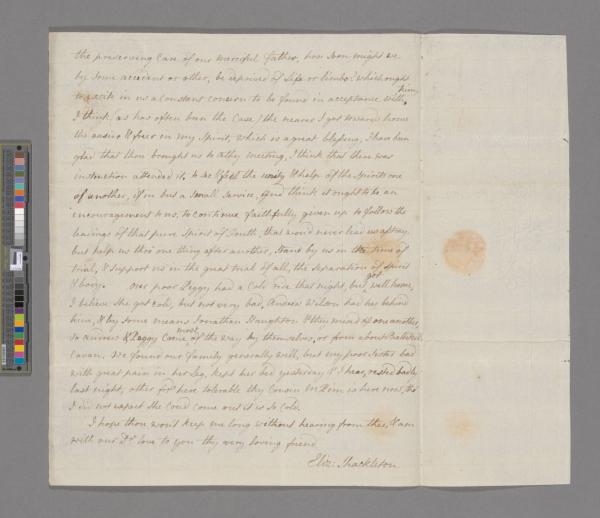 the preserving Care of our merciful father, how soon might we
by some accident or other, be deprived of life or limbs? which ought
to excite in us a constant concern to be found in acceptance with him,
I think (as has often been the Case) the nearer I got towards home
the easier & freer on my Spirit, which is a great blessing, I have been
glad that thou brought us to Athy meeting, I think that there was
instruction attended it, to see & feel the unity & help of the Spirits one
of another, if in but a small service, and think it ought to be an
encouragement to us, to continue faithfully given up to follow the
leadings of that pure Spirit of Truth, that would never lead us astray
but help us thro' one thing after another, stand by us in the time of
trial, & support us in the great trial of all, the separation of Spirit
& body. Our poor Peggy had a Cold ride that night, but got well home,
I believe she got cold, but not very bad, Andrew Wilson had her behind
him, & by some means Jonathan Haughton & they mised of one another,
so Andrew & Peggy Came most of the way by themselves, or from about
Cavan. We found our family generally well, but my poor Sister bad
with great pain in her leg, kept her bed yesterday & I hear, rested badly
last night, other frds here tolerable thy Cousin is here now, tho'
I did not expect she Could come out it is so Cold.
I hope thou won't keep me long without hearing from thee, & am
with our Dr love to you thy very loving friend
Eliz: Shackleton